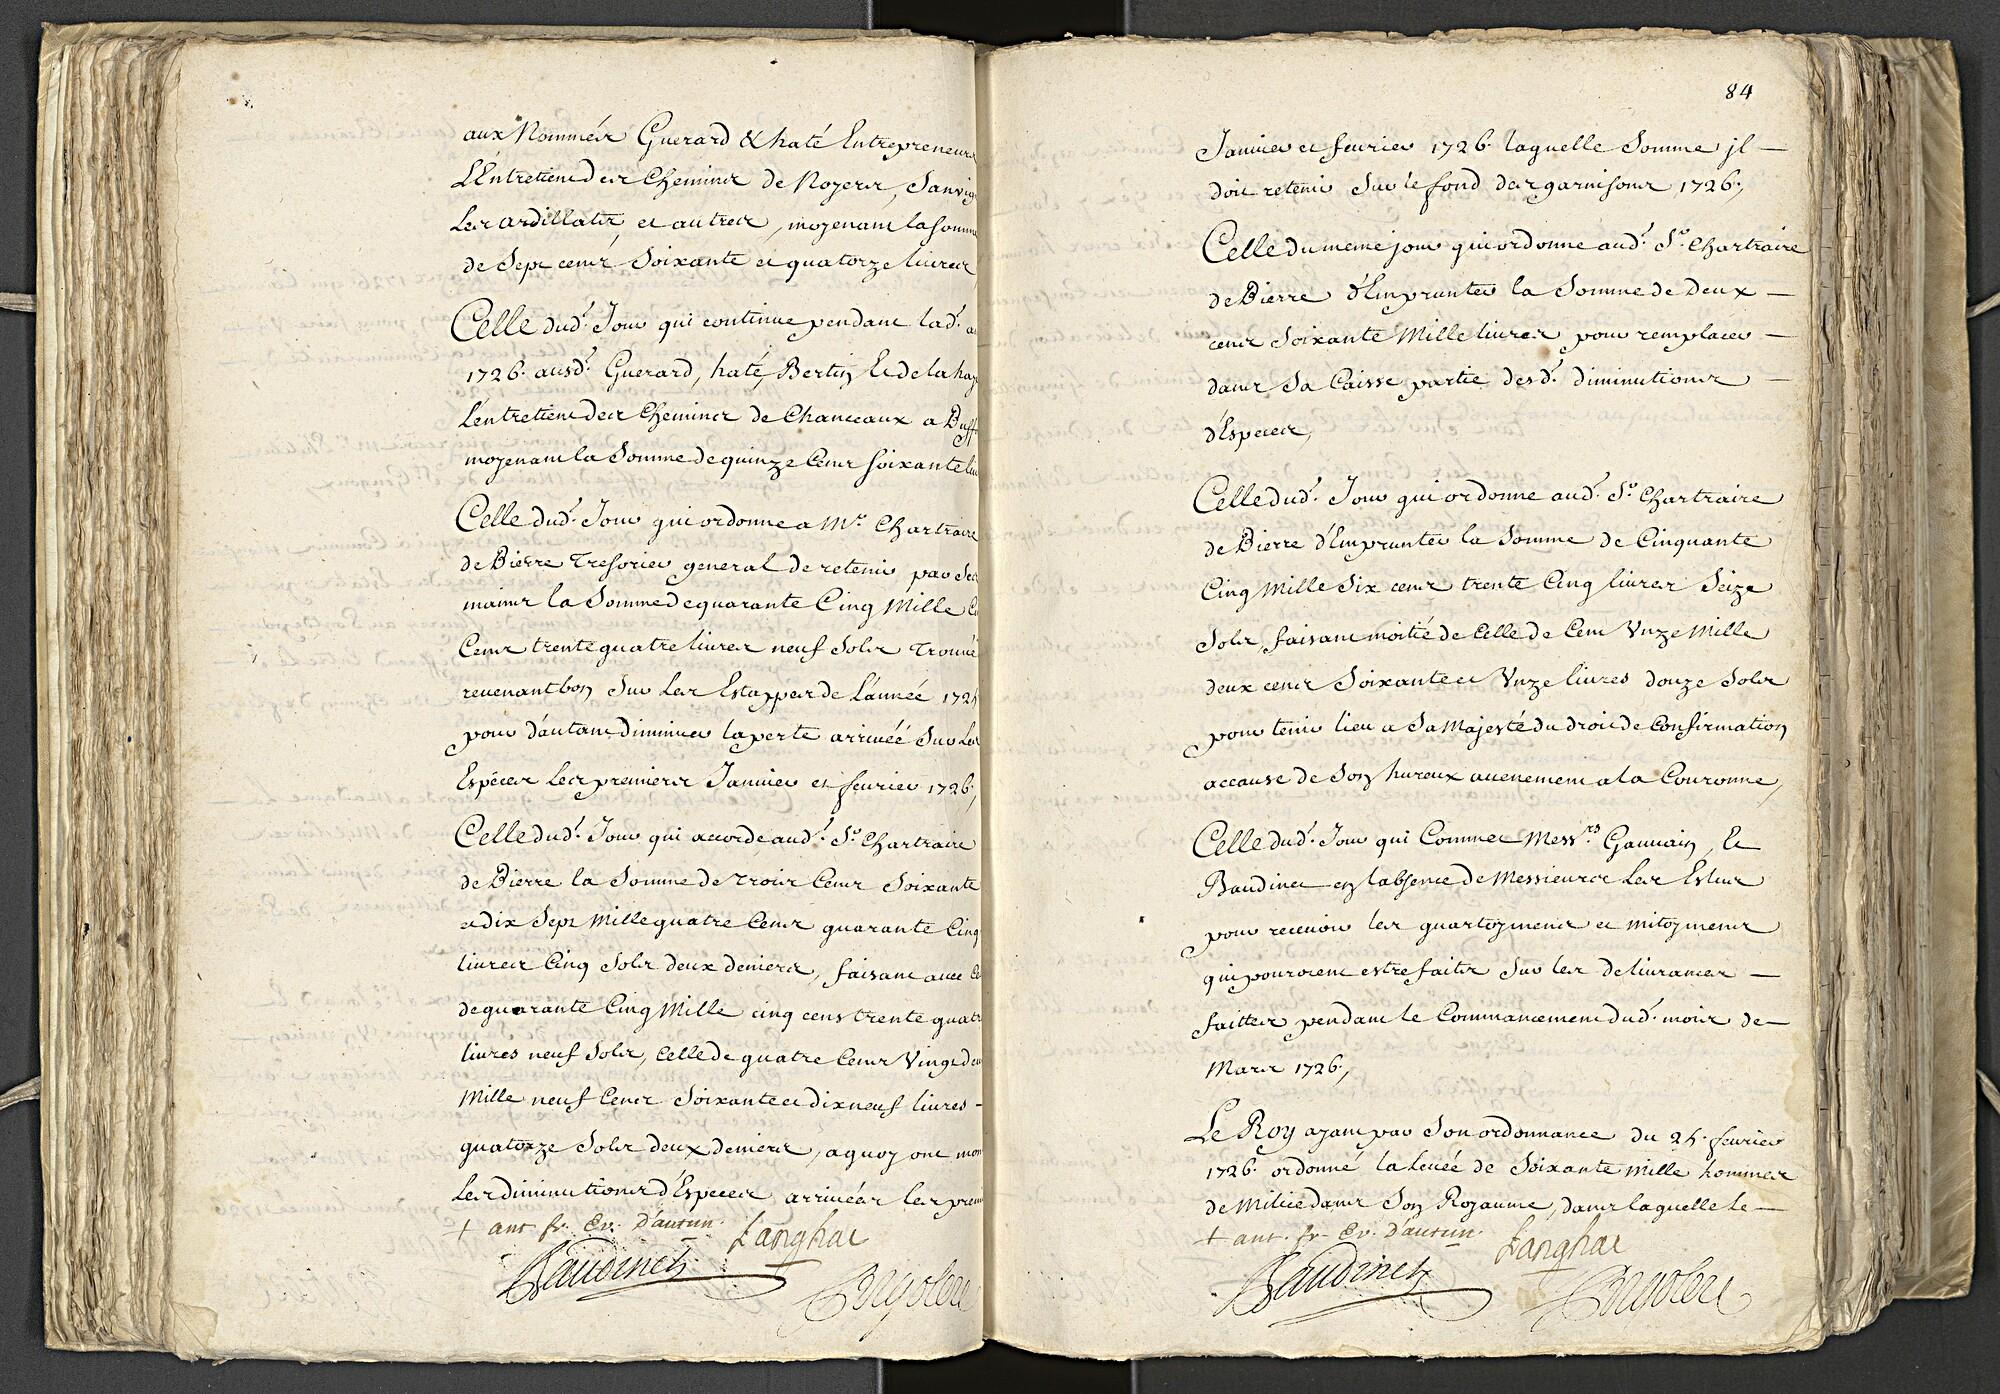 aux Nommés Guerard & haté Entrepreneurs
L'Entretien des Chemins de Noyers, Sanvig
Les ardillats, et autres, moyenant la somme
de Sept cens Soixante et quatorze livres
Celle dud.t Jour qui continue pendant lad.t
1726. ausd.t Guerard, haté, Bertin, Le de la haye
L'entretien des Chemins de Chanceaux a Buff
moyenant la Somme de quinze Cens soixante liv
Celle dud.t Jour qui ordonne a Mr. Chartraire
de Bierre Tresorier general de retenir par Ses
mains la Somme de quarante Cinq Mille
Cens trente quatre livres neuf Sols Trouvé
revenant bon Sur Les Estappes de L'année 1725
pour d'autant diminuer la perte arrivéé Sur Les
Espéces Les premiers Janvier et fevrier 1726,
Celle dud.t Jour qui accorde aud.t Sr. Chartraire
de Bierre la Somme de Trois Cens Soixante
et dix Sept Mille quatre Cens quarante Cinq
livres Cinq Sols deux deniers, faisant avec
de quarante Cinq Mille cinq cens trente quatre
livres neuf Sols, Celle de quatre Cens Vingt deux
Mille neuf Cens Soixante et dix neuf livres -
quatorze Sols deux deniers, a quoy ont mon
Les diminutions d'Especes arrivéés les prem
+ ant. fr. Ev. D'autun. Langhac
Baudinet
84
Janvier et fevrier 1726. laquelle Somme jl —
doit retenir Sur le fond des garnisons 1726,
Celle du meme jour qui ordonne aud.t Sr. Chartraire
de Bierre d'Emprunter la Somme de Deux —
cens Soixante Mille livres pour remplacer —
dans Sa Caisse partie desd.t diminutions —
d'Especes,
Celle dud.t Jour qui ordonne aud.t Sr. Chartraire
de Bierre d'Emprunter la Somme de Cinquante
Cinq Mille Six cens trente Cinq livres Seize
Sols, faisant moitié de Celle de Cent Vnze Mille
deux cens Soixante et Vnze livres douze Sols
pour tenir lieu a Sa Majesté du droit de Confirmation
accause de Son hureux avenement a la Couronne,
Celle dud.t Jour qui Commet Messrs. Gauvain, Le
Baudinet en l'absence de Messieurs Les Eslus
pour recevoir les quartoymens et mitoymens
qui pouroient estre faits Sur les delivrances —
faittes pendant le Commancement dud.t mois de —
Mars 1726,
Le Roy ayant par Son ordonnance du 25. fevrier
1726. ordonné la Levéé de Soixante mille hommes
de Milice dans Son Royaume, dans laquelle le —
+ ant. fr. Ev. D'autun. Langhac
Baudinet